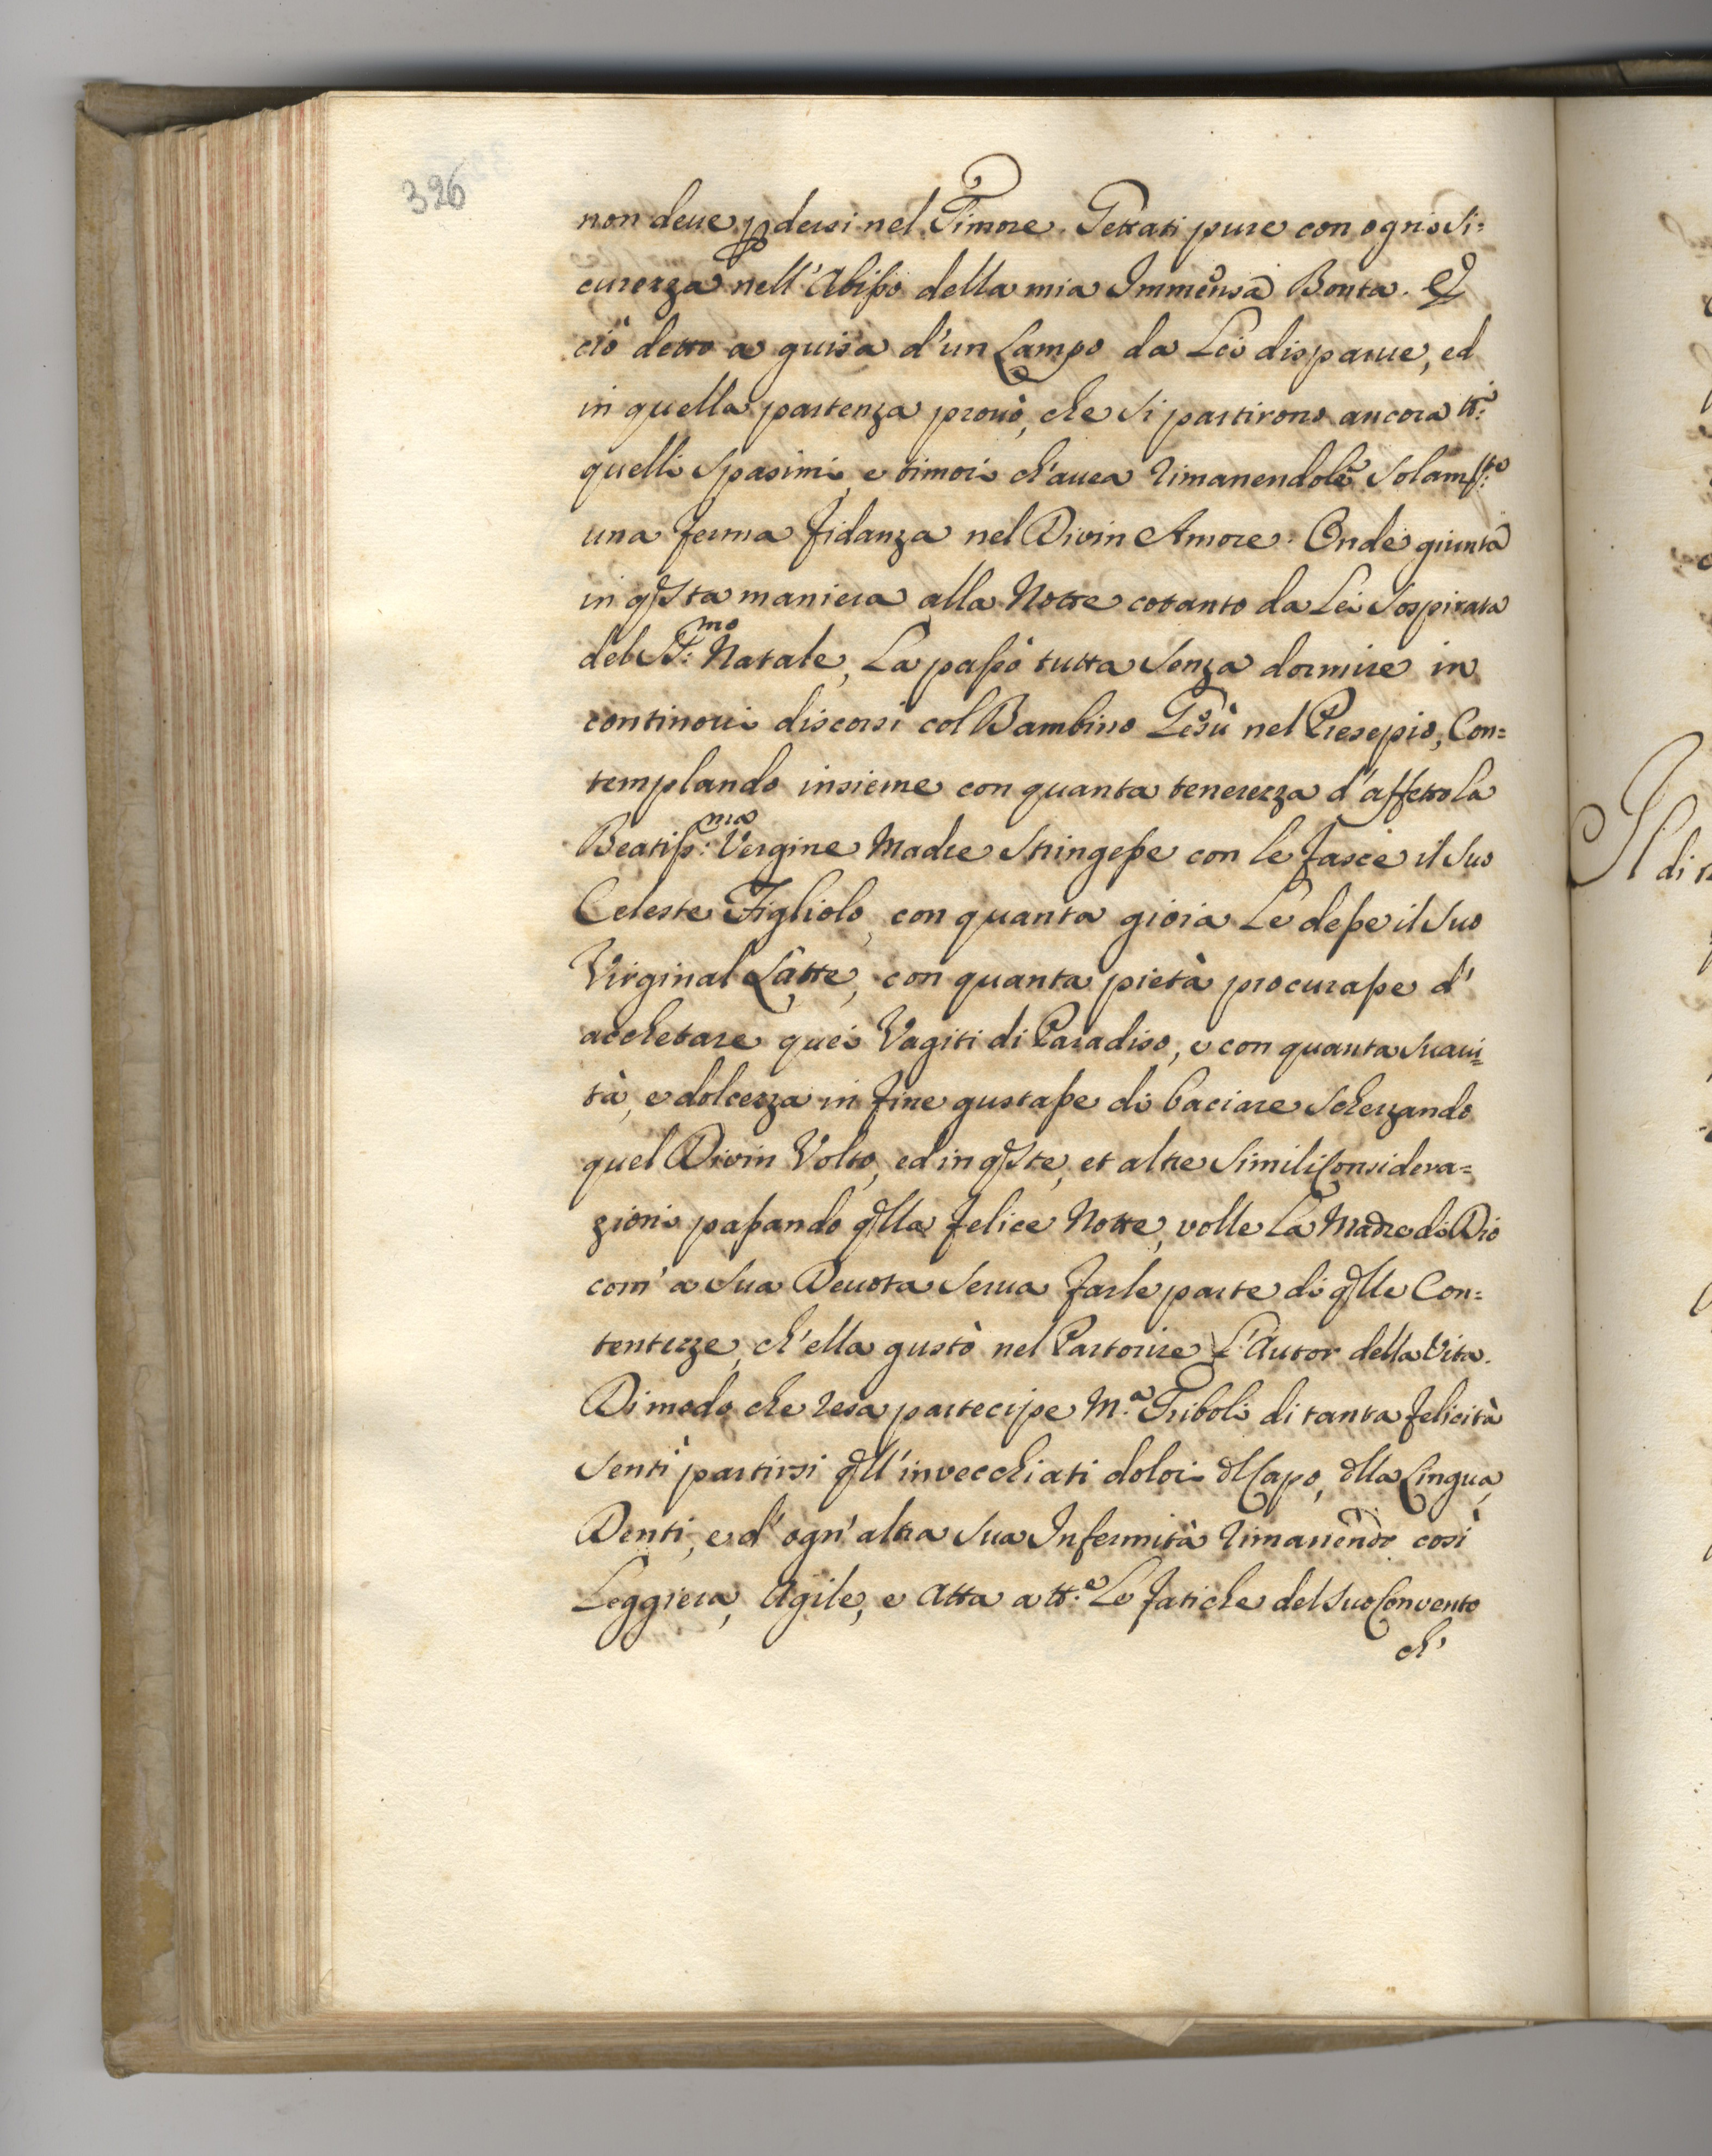 326
non deue pdersi nel Timore. Gettati pure con ogni Si=
curezza nell'Abisso della mia Immensa Bontà. E
ciò detto a guisa d'un Lampo da Lei disparue, ed
in quella partenza prouò, che si partirono ancora tt.i
quelli Spasimi, e timori ch'auea rimanendole Solamte:
una ferma fidanza nel Divin Amore. Onde giunta
in qsta maniera alla Notte cotanto da Lei Sospirata
del SSmo: Natale, La passò tutta Senza dormire in
continoui discorsi col Bambino Gesù nel Presepio, Con=
templando insieme con quanta tenerezza d'affetto la
Beatissma: Vergine Madre Stringesse con le fasce il Suo
Celeste Figliolo, con quanta gioia Le desse il Suo
Virginal Latte, con quanta pietà procurasse d'
acchetare quei Vagiti di Paradiso, e con quanta Suaui=
tà, e dolcezza in fine gustasse di baciare Scherzando
quel Divin Volto, ed in qste, et altre Simili Considera=
zioni passando qlla felice Notte, volle La Madre di Dio
com' a Sua Deuota Serua farle parte di qlle Con=
tentezze, ch'ella gustò nel Partorire L'Autor della Vita.
Di modo che resa partecipe M.a Triboli di tanta felicità
Sentì partirsi qll'invecchiati dolori dl Capo, dlla Lingua,
Denti, e d'ogn'altra Sua Infermità rimanendo così
Leggiera, Agile, e Atta a tt.e Le fatiche del Suo Convento
ch'
Il
di